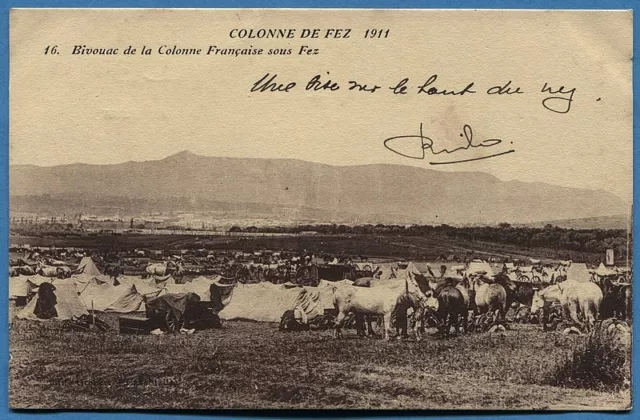 COLONNE DE FEZ 1911
16. Bivouac de la Colonne Française sous Fez
Une bise sur le haut du nez.